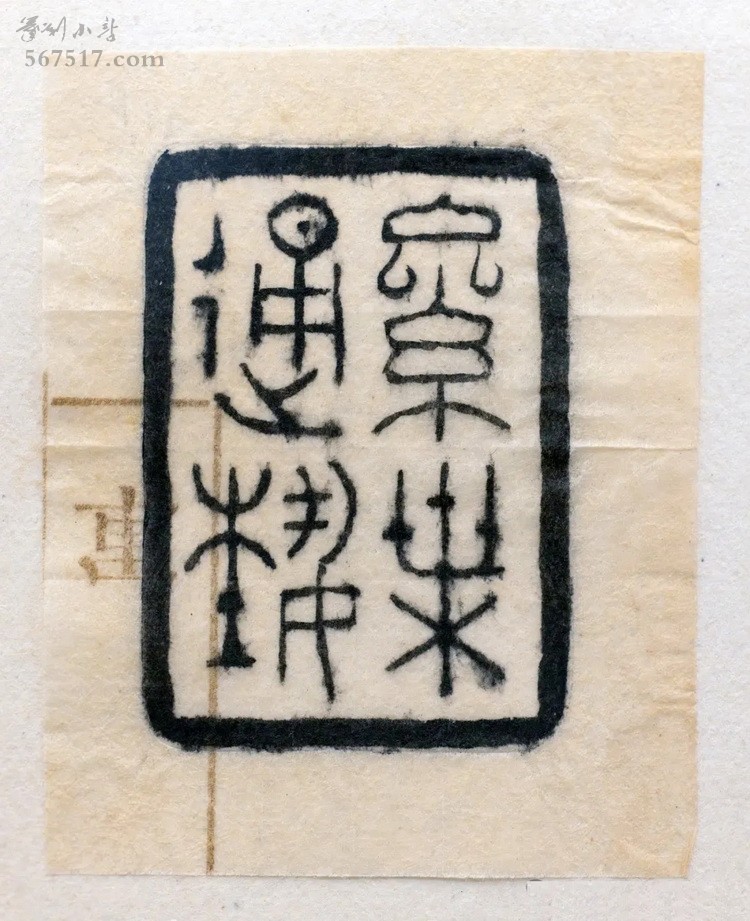 篆刻小站
567517.com
絫枼
通埶